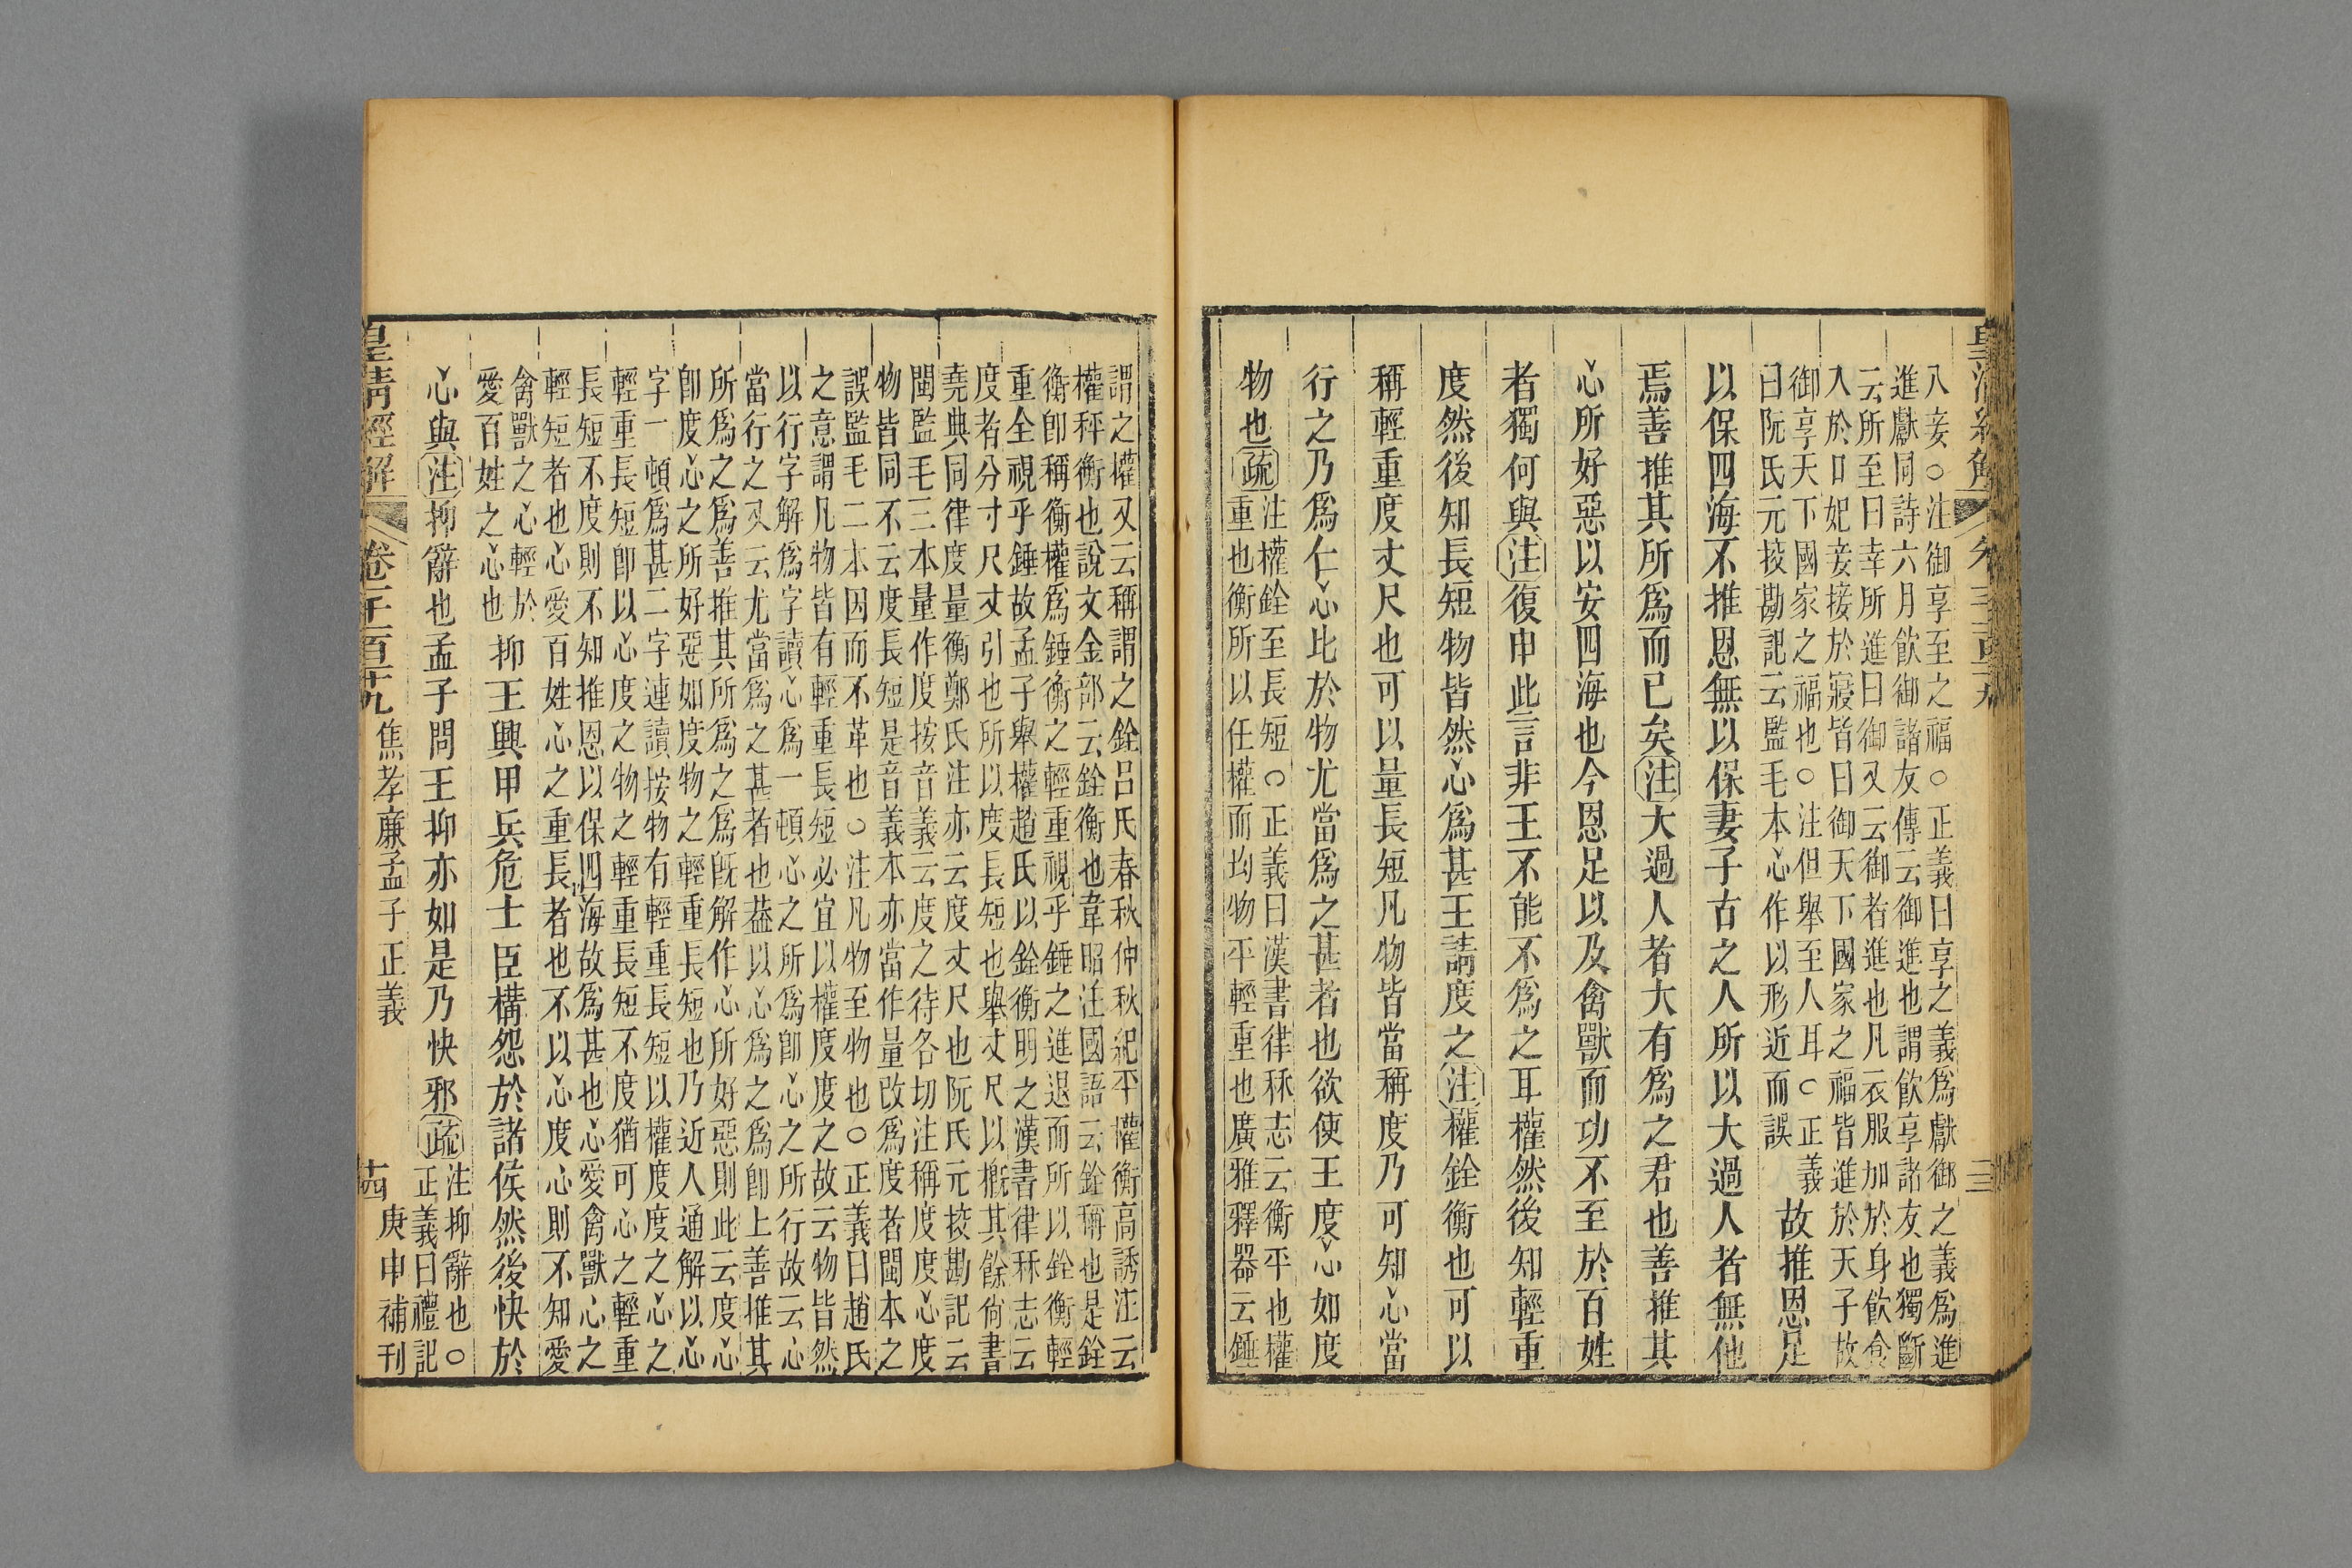 八妾○注御享至之福○正義曰享之義爲獻御之義爲進
進獻同詩六月飲御諸友傳云御進也謂飲享諸友也獨斷
云所至曰幸所進曰御又云御者進也凡衣服加於身飲食
入於口妃妾接於寢皆曰御天下國家之福皆進於天子故
御享天下國家之福也○注但舉至人耳○正義
曰阮氏元挍勘記云監毛本心作以形近而誤
故推恩足
以保四海不推恩無以保妻子古之人所以大過人者無他
焉善推其所爲而已矣注大過人者大有爲之君也善推其
心所好惡以安四海也今恩足以及禽獸而功不至於百姓
者獨何與注復申此言非王不能不爲之耳權然後知輕重
度然後知長短物皆然心爲甚王請度之注權銓衡也可以
稱輕重度丈尺也可以量長短凡物皆當稱度乃可知心當
行之乃爲仁心比於物尤當爲之甚者也欲使王度心如度
物也疏
注權銓至長短○正義曰漢書律秝志云衡平也權
重也衡所以任權而均物平輕重也廣雅釋器云錘
謂之權又云稱謂之銓呂氏春秋仲秋紀平權衡高誘注云
權秤衡也說文金部云銓衡也韋昭注國語云銓稱也是銓
衡卽稱衡權爲錘衡之輕重視乎錘之進退而所以銓衡輕
重全視乎錘故孟子舉權趙氏以銓衡明之漢書律秝志云
度者分寸尺丈引也所以度長短也舉丈尺以槪其餘尙書
堯典同律度量衡鄭氏注亦云度丈尺也阮氏元挍勘記云
閩監毛三本量作度按音義云度之待各切注稱度度心度
物皆同不云度長短是音義本亦當作量改爲度者閩本之
誤監毛二本因而不革也○注凡物至物也○正義曰趙氏
之意謂凡物皆有輕重長短必宜以權度度之故云物皆然
以行字解爲字讀心爲一頓心之所爲卽心之所行故云心
當行之又云尤當爲之甚者也葢以心爲之爲卽上善推其
所爲之爲善推其所爲之爲旣解作心所好惡則此云度心
卽度心之所好惡如度物之輕重長短也乃近人通解以心
字一頓爲甚二字連讀按物有輕重長短以權度度之心之
輕重長短卽以心度之物之輕重長短不度猶可心之輕重
長短不度則不知推恩以保四海故爲甚也心愛禽獸心之
輕短者也心愛百姓心之重長者也不以心度心則不知愛
禽獸之心輕於
愛百姓之心也
抑王興甲兵危士臣構怨於諸侯然後快於
心與注抑辭也孟子問王抑亦如是乃快邪疏
注抑辭也○
正義曰禮記
皇淸經解
卷一千一百十九
焦孝廉孟子正義
十四
庚申補刊